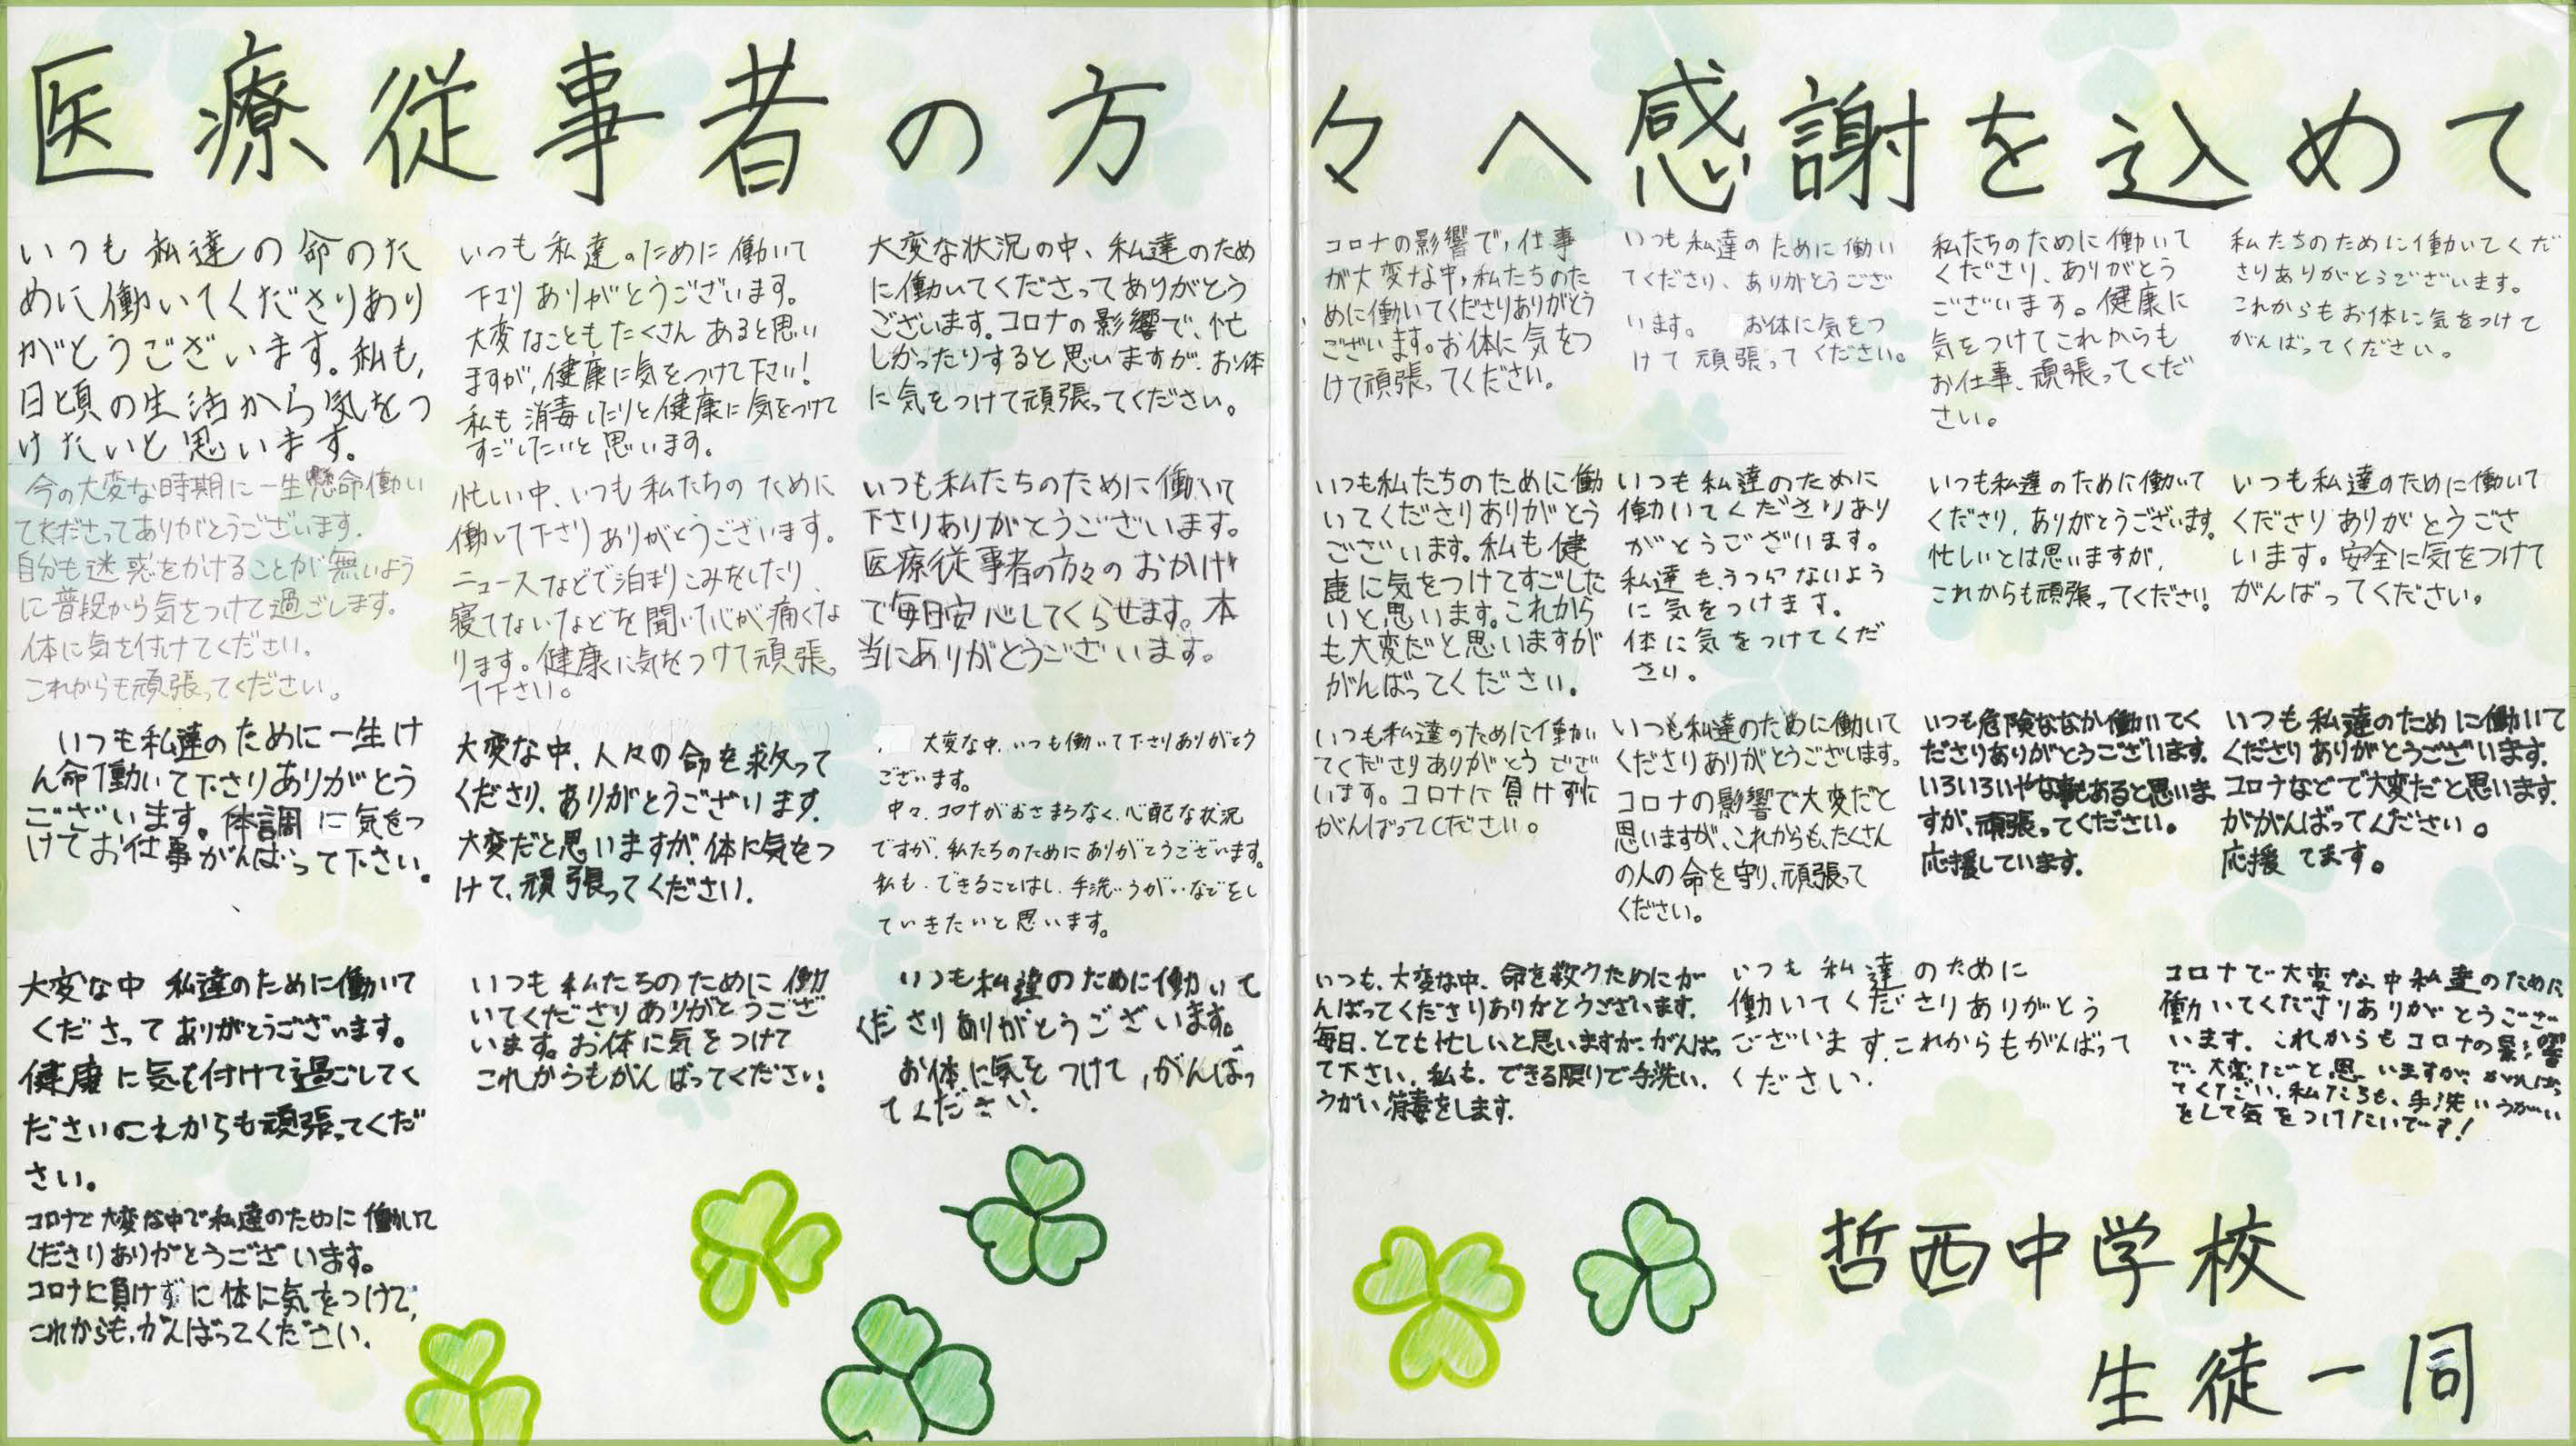 医療従事者の方々へ感謝を込めて
いつも私達の命のた
めに働いてくださりあり
がとうございます。私も、
日頃の生活から気をつ
けたいと思います。
いつも私達のために働いて
下さりありがとうございます。
大変なこともたくさんあると思い
ますが、健康に気をつけて下さい!
私も消毒したりと健康に気をつけて
すごしたいと思います。
大変な状況の中、私達のため
に働いてくださってありがとう
ございます。コロナの影響で、忙
しかったりすると思いますが、お体
に気をつけて頑張ってください。
今の大変な時期に一生懸命働い
てくださってありがとうございます。
自分も迷惑をかけることが無いよう
に普段から気をつけて過ごします。
体に気を付けてください。
これからも頑張ってください。
忙しい中、いつも私たちのために
働いて下さりありがとうございます。
ニュースなどで泊まりこみをしたり、
寝てないなどを聞いて心が痛くな
ります。健康に気をつけて頑張っ
て下さい。
いつも私たちのために働いて
下さりありがとうございます。
医療従事者の方々のおかげ
で毎日安心してくらせます。本
当にありがとうございます。
いつも私達のために一生け
ん命働いて下さりありがとう
ございます。体調に気をつ
けてお仕事がんばって下さい。
大変な中、人々の命を救って
くださり、ありがとうございます.
大変だと思いますが、体に気をつ
けて、頑張ってください.
大変な中、いつも働いて下さりありがとう
ございます。
中々、コロナがおさまらなく、心配な状況
ですが、私たちのためにありがとうございます。
私も、できることはし、手洗いうがいなどをし
ていきたいと思います。
大変な中 私達のために働いて
くださってありがとうございます。
健康に気を付けて過ごしてく
ださい。これからも頑張ってくだ
さい。
いつも私たちのために働
いてくださりありがとうござ
います。お体に気をつけて
これからもがんばってください。
いつも私達のために働いて
くださりありがとうございます。
お体に気をつけて、がんばっ
てください.
コロナで大変な中で私達のために働いて
くださりありがとうございます。
コロナに負けずに体に気をつけて、
これからも、がんばってください.
コロナの影響で、仕事
が大変な中、私たちのた
めに働いてくださりありがとう
ございます。お体に気をつ
けて頑張ってください。
いつも私達のために働い
てくださり、ありがとうござ
います。 お体に気をつ
けて頑張ってください。
私たちのために働いて
くださり、ありがとう
ございます。健康に
気をつけてこれからも
お仕事、頑張ってくだ
さい。
私たちのために働いてくだ
さりありがとうございます。
これからもお体に気をつけて
がんばってください。
いつも私たちのために働
いてくださりありがとう
ございます。私も健
康に気をつけてすごした
いと思います。これから
も大変だと思いますが
がんばってください。
いつも私達のために
働いてくださりあり
がとうございます。
私達も、うつらないよう
に気をつけます。
体に気をつけてくだ
さり。
いつも私達のために働いて
くださり、ありがとうございます。
忙しいとは思いますが、
これからも頑張ってください。
いつも私達のために働いて
くださりありがとうござ
います。安全に気をつけて
がんばってください。
いつも私達のために働い
てくださりありがとうござ
います。コロナに負けずに
がんばってください。
いつも私達のために働いて
くださりありがとうございます。
コロナの影響で大変だと
思いますが、これからも、たくさん
の人の命を守り、頑張って
ください。
いつも危険ななか働いてく
ださりありがとうございます.
いろいろいやな事もあると思いま
すが、頑張ってください。
応援しています.
いつも私達のために働いて
くださりありがとうございます.
コロナなどで大変だと思います.
ががんばってください。
応援 てます。
いつも、大変な中、命を救うためにが
んばってくださりありがとうございます.
毎日、とても忙しいと思いますが、がんばっ
て下さい. 私も、できる限りで手洗い、
うがい消毒をします.
いつも私達のために
働いてくださりありがとう
ございます.これからもがんばって
ください.
コロナで大変な中私達のために
働いてくださりありがとうござ
います. これからもコロナの影響
で、大変だと思いますが、がんばっ
てください. 私たちも、手洗いうがい
をして気をつけたいです!
哲西中学校
生徒一同